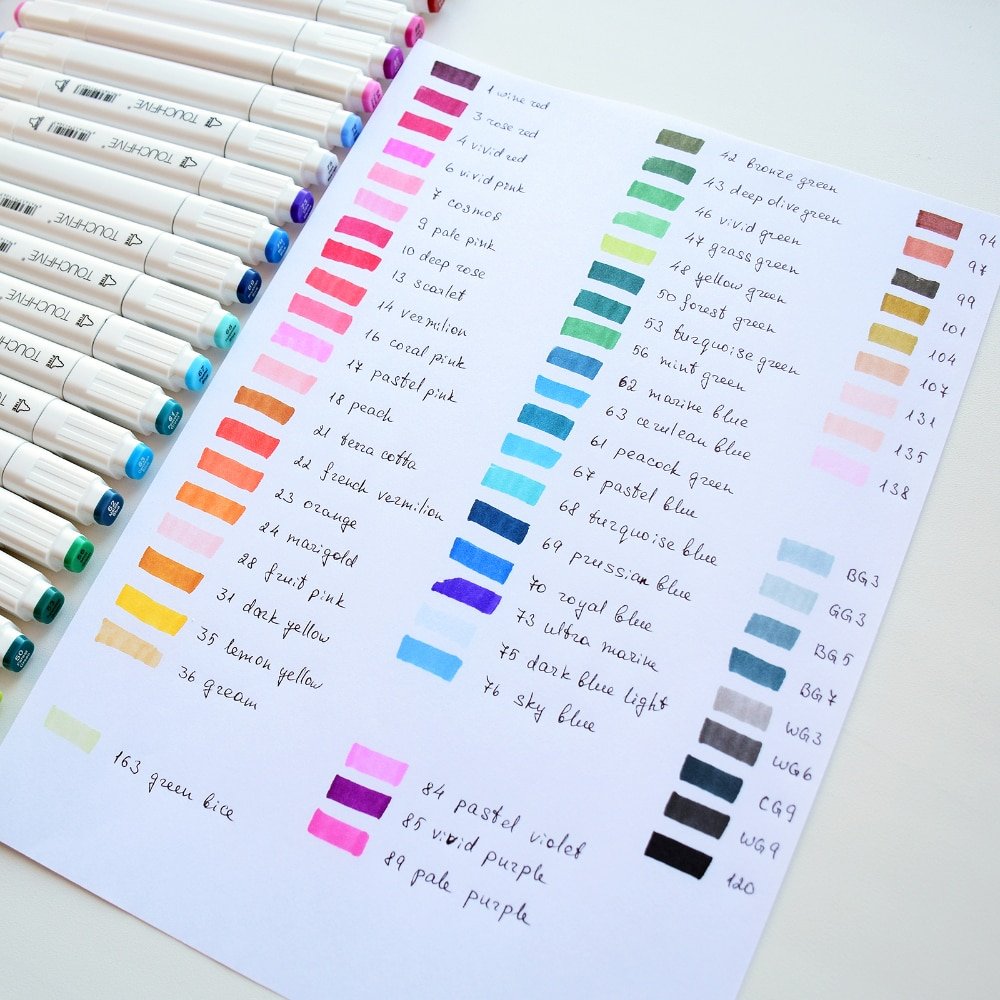 1 wine red
3 rose red
4 vivid red
6 vivid pink
7 cosmos
9 pale pink
10 deep rose
13 scarlet
14 vermilion
16 coral pink
17 pastel pink
18 peach
21 terra cotta
22 french vermilion
23 orange
24 marigold
28 fruit pink
31 dark yellow
35 lemon yellow
36 gream
163 green bice
42 bronze green
43 deep olive green
46 vivid green
47 grass green
48 yellow green
50 forest green
53 turquoise green
56 mint green
62 marine blue
63 cerulean blue
61 peacock green
67 pastel blue
68 turquoise blue
69 prussian blue
70 royal blue
73 ultra marine
75 dark blue light
76 sky blue
84 pastel violet
85 vivid purple
89 pale purple
94
97
99
101
104
107
131
135
138
BG3
GG3
BG5
BG7
WG3
WG6
CG9
WG9
120
TOUCHFIVE
TOUCHFIVE
TOUCHFIVE
TOUCHFIVE
TOUCHFIVE
TOUCHFIVE
62
50